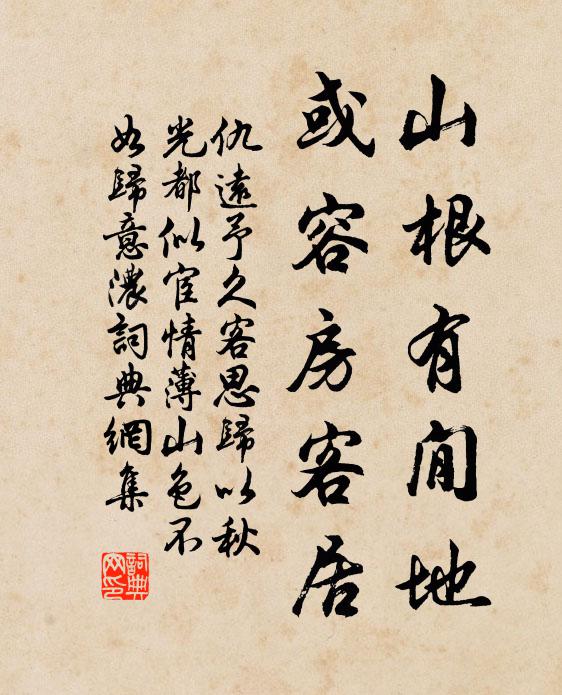 山根有閒地
或容房客居
仇遠予久客思歸以秋
光都似宦情薄山色不
如歸意濃詞典網集
詞典
网印